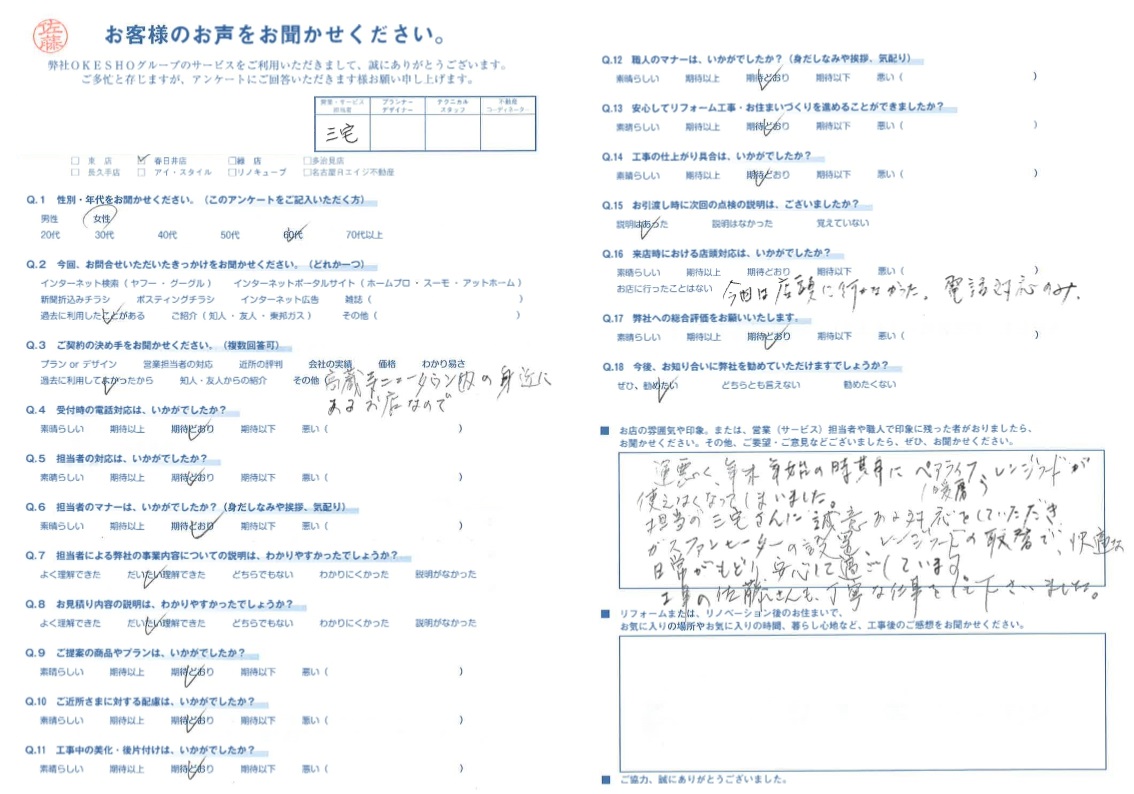 佐藤
お客様のお声をお聞かせください。
弊社OKESHOグループのサービスをご利用いただきまして、誠にありがとうございます。
ご多忙と存じますが、アンケートにご回答いただきます様お願い申し上げます。
営業・サービス担当者 プランナーデザイナー テクニカルスタッフ 不動産コーディネーター
三宅
□ 東 店 □ 春日井店 □緑 店 □多治見店
□ 長久手店 □ アイ・スタイル □リノキューブ □名古屋Rエイジ不動産
Q.1 性別・年代をお聞かせください。（このアンケートをご記入いただく方）
男性 女性
20代 30代 40代 50代 60代 70代以上
Q.2 今回、お問合せいただいたきっかけをお聞かせください。（どれか一つ）
インターネット検索（ ヤフー ・ グーグル ） インターネットポータルサイト（ ホームプロ ・ スーモ ・ アットホーム ）
新聞折込みチラシ ポスティングチラシ インターネット広告 雑誌（ ）
過去に利用したことがある ご紹介（ 知人 ・ 友人 ・ 東邦ガス ） その他（ ）
Q.3 ご契約の決め手をお聞かせください。（複数回答可）
プラン or デザイン 営業担当者の対応 近所の評判 会社の実績 価格 わかり易さ
過去に利用してよかったから 知人・友人からの紹介 その他 高蔵寺ニュータウン内の身近に
あるお店なので
Q.4 受付時の電話対応は、いかがでしたか？
素晴らしい 期待以上 期待どおり 期待以下 悪い（ ）
Q.5 担当者の対応は、いかがでしたか？
素晴らしい 期待以上 期待どおり 期待以下 悪い（ ）
Q.6 担当者のマナーは、いかがでしたか？（身だしなみや挨拶、気配り）
素晴らしい 期待以上 期待どおり 期待以下 悪い（ ）
Q.7 担当者による弊社の事業内容についての説明は、わかりやすかったでしょうか？
よく理解できた だいたい理解できた どちらでもない わかりにくかった 説明がなかった
Q.8 お見積り内容の説明は、わかりやすかったでしょうか？
よく理解できた だいたい理解できた どちらでもない わかりにくかった 説明がなかった
Q.9 ご提案の商品やプランは、いかがでしたか？
素晴らしい 期待以上 期待どおり 期待以下 悪い（ ）
Q.10 ご近所さまに対する配慮は、いかがでしたか？
素晴らしい 期待以上 期待どおり 期待以下 悪い（ ）
Q.11 工事中の美化・後片付けは、いかがでしたか？
素晴らしい 期待以上 期待どおり 期待以下 悪い（ ）
Q.12 職人のマナーは、いかがでしたか？（身だしなみや挨拶、気配り）
素晴らしい 期待以上 期待どおり 期待以下 悪い（ ）
Q.13 安心してリフォーム工事・お住まいづくりを進めることができましたか？
素晴らしい 期待以上 期待どおり 期待以下 悪い（ ）
Q.14 工事の仕上がり具合は、いかがでしたか？
素晴らしい 期待以上 期待どおり 期待以下 悪い（ ）
Q.15 お引渡し時に次回の点検の説明は、ございましたか？
説明はあった 説明はなかった 覚えていない
Q.16 来店時における店頭対応は、いかがでしたか？
素晴らしい 期待以上 期待どおり 期待以下 悪い（ ）
お店に行ったことはない 今回は店頭に行かなかった。電話対応のみ。
Q.17 弊社への総合評価をお願いいたします。
素晴らしい 期待以上 期待どおり 期待以下 悪い（ ）
Q.18 今後、お知り合いに弊社を勧めていただけますでしょうか？
ぜひ、勧めたい どちらとも言えない 勧めたくない
■ お店の雰囲気や印象。または、営業（サービス）担当者や職人で印象に残った者がおりましたら、
お聞かせください。その他、ご要望・ご意見などございましたら、ぜひ、お聞かせください。
運悪く、年末年始の時期にペアライフ、レンジフードが
（暖房）
使えなくなってしまいました。
担当の三宅さんに誠意ある対応をしていただき
ガスファンヒーターの設置、レンジフードの取替で、快適な
日常がもどり安心して過ごしています
工事の佐藤さんも、丁寧な仕事をして下さいました。
■ リフォームまたは、リノベーション後のお住まいで、
お気に入りの場所やお気に入りの時間、暮らし心地など、工事後のご感想をお聞かせください。
■ ご協力、誠にありがとうございました。